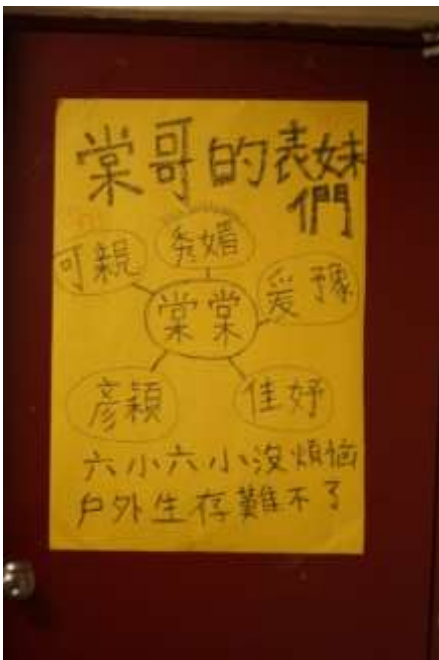 棠哥的表妹
們
秀媚
可親
爰豫
棠棠
彥穎
佳妤
六小六小沒煩惱
戶外生存難不了